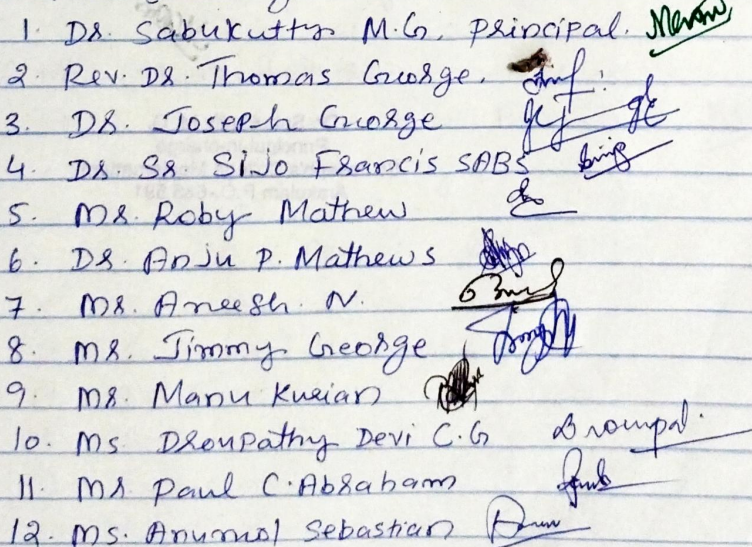 1. Dr. Sabukutty M.G, Principal.
2. Rev. Dr. Thomas George.
3. Dr. Joseph George
4. Dr. Sr Sijo Francis SABS
5. Mr. Roby Mathew
6. Dr. Anju P. Mathews
7. Mr. Aneesh. N.
8. Mr. Jimmy George
9. Mr. Manu Kurian
10. Ms Droupathy Devi C.G
11. Mr Paul C. Abraham
12. Ms. Anumol Sebastian